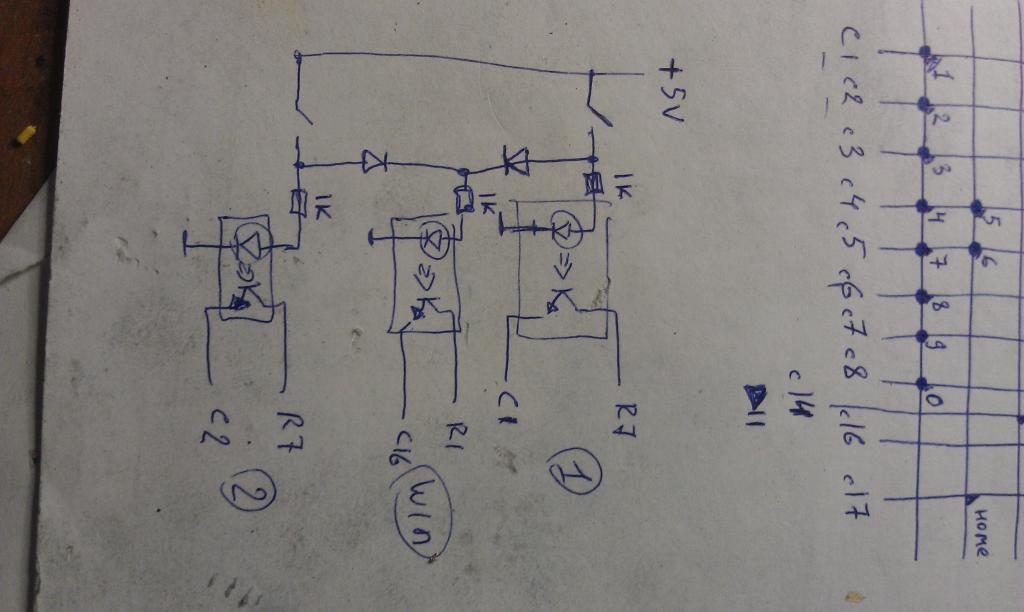 +5V
1K
1K
1K
R7
C1
1
R1
C16
Win
R7
C2
2
C1 C2 C3 C4 C5 C6 C7 C8 C16 C17
1 2 3 4 7 8 9 0
5 6 HOME
C14
11